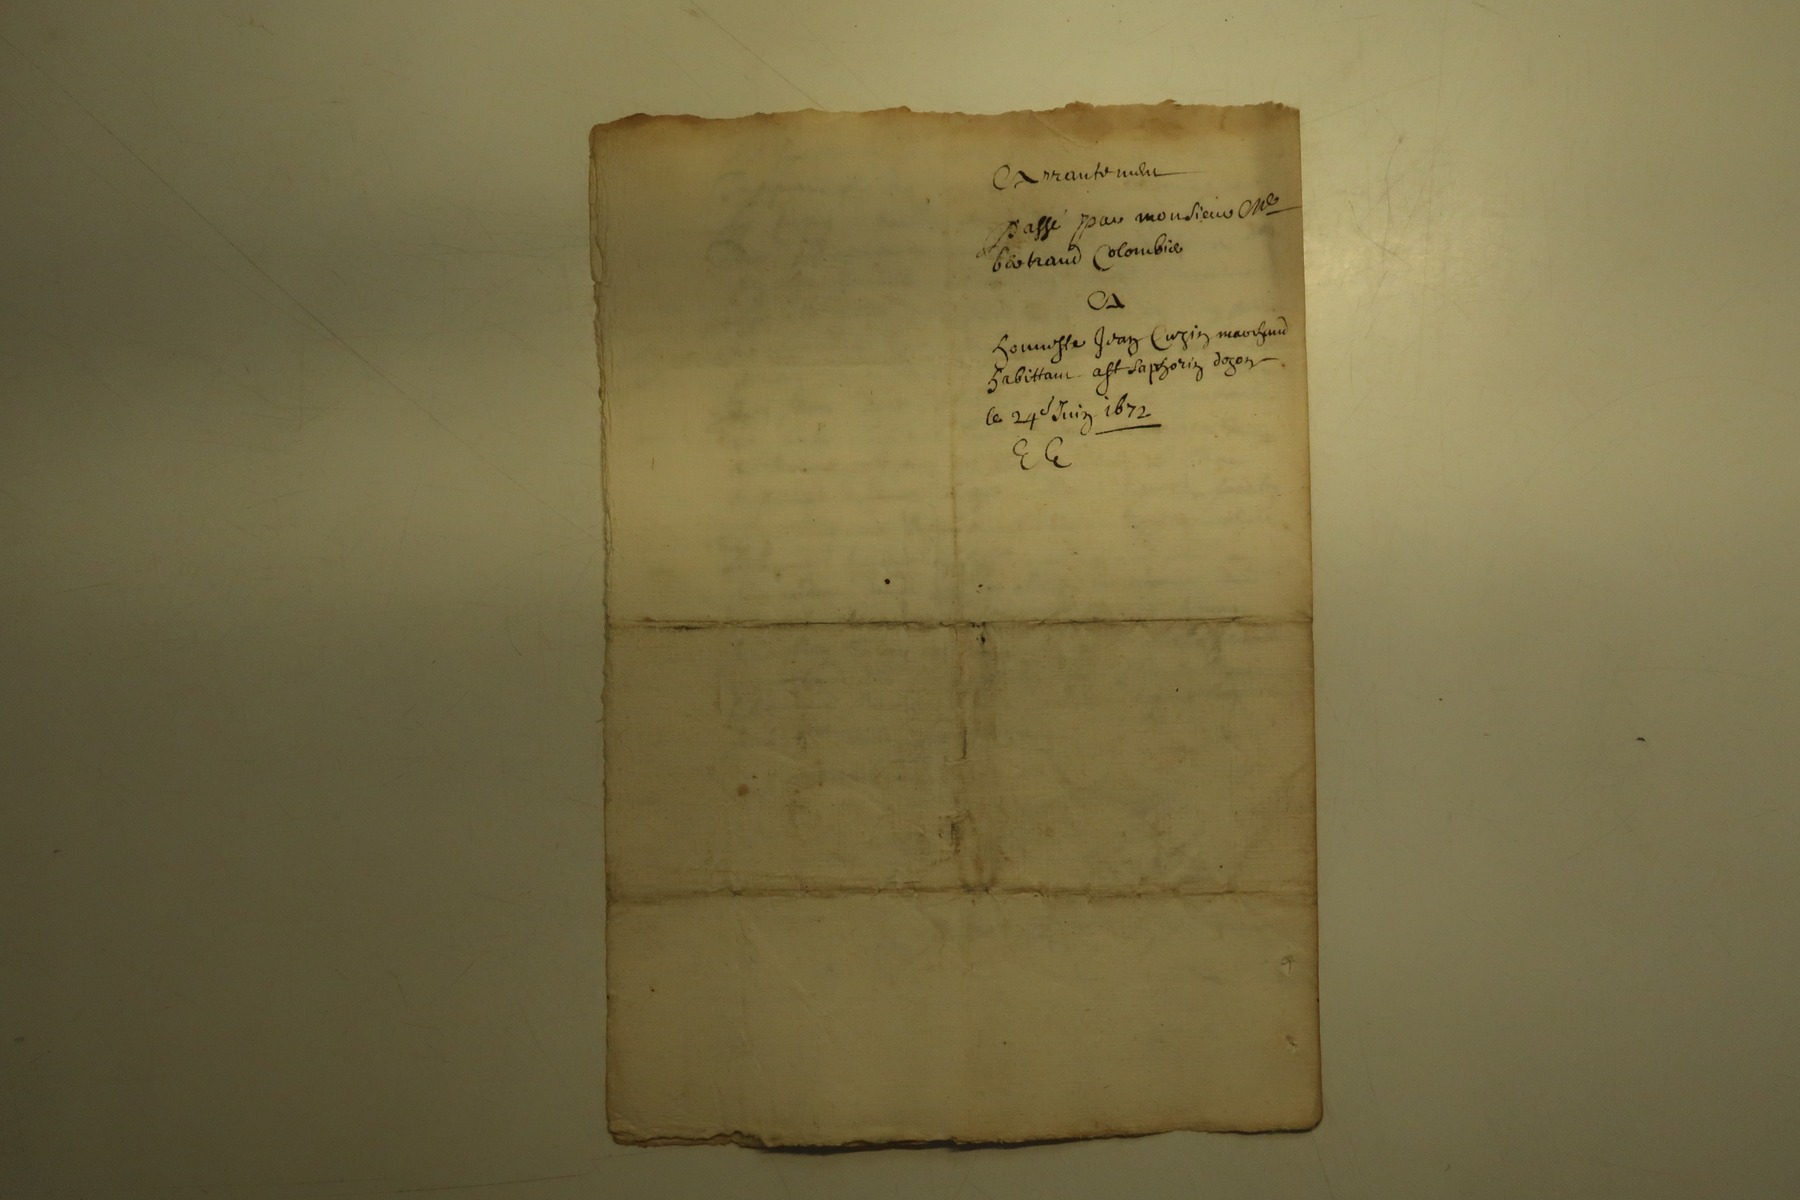 Arrantemen
passé par monsieur Me
bertrand Colombie
A
honneste Jean Crespin marchand
habittant a st saphorin dozon
le 24e Juin 1672